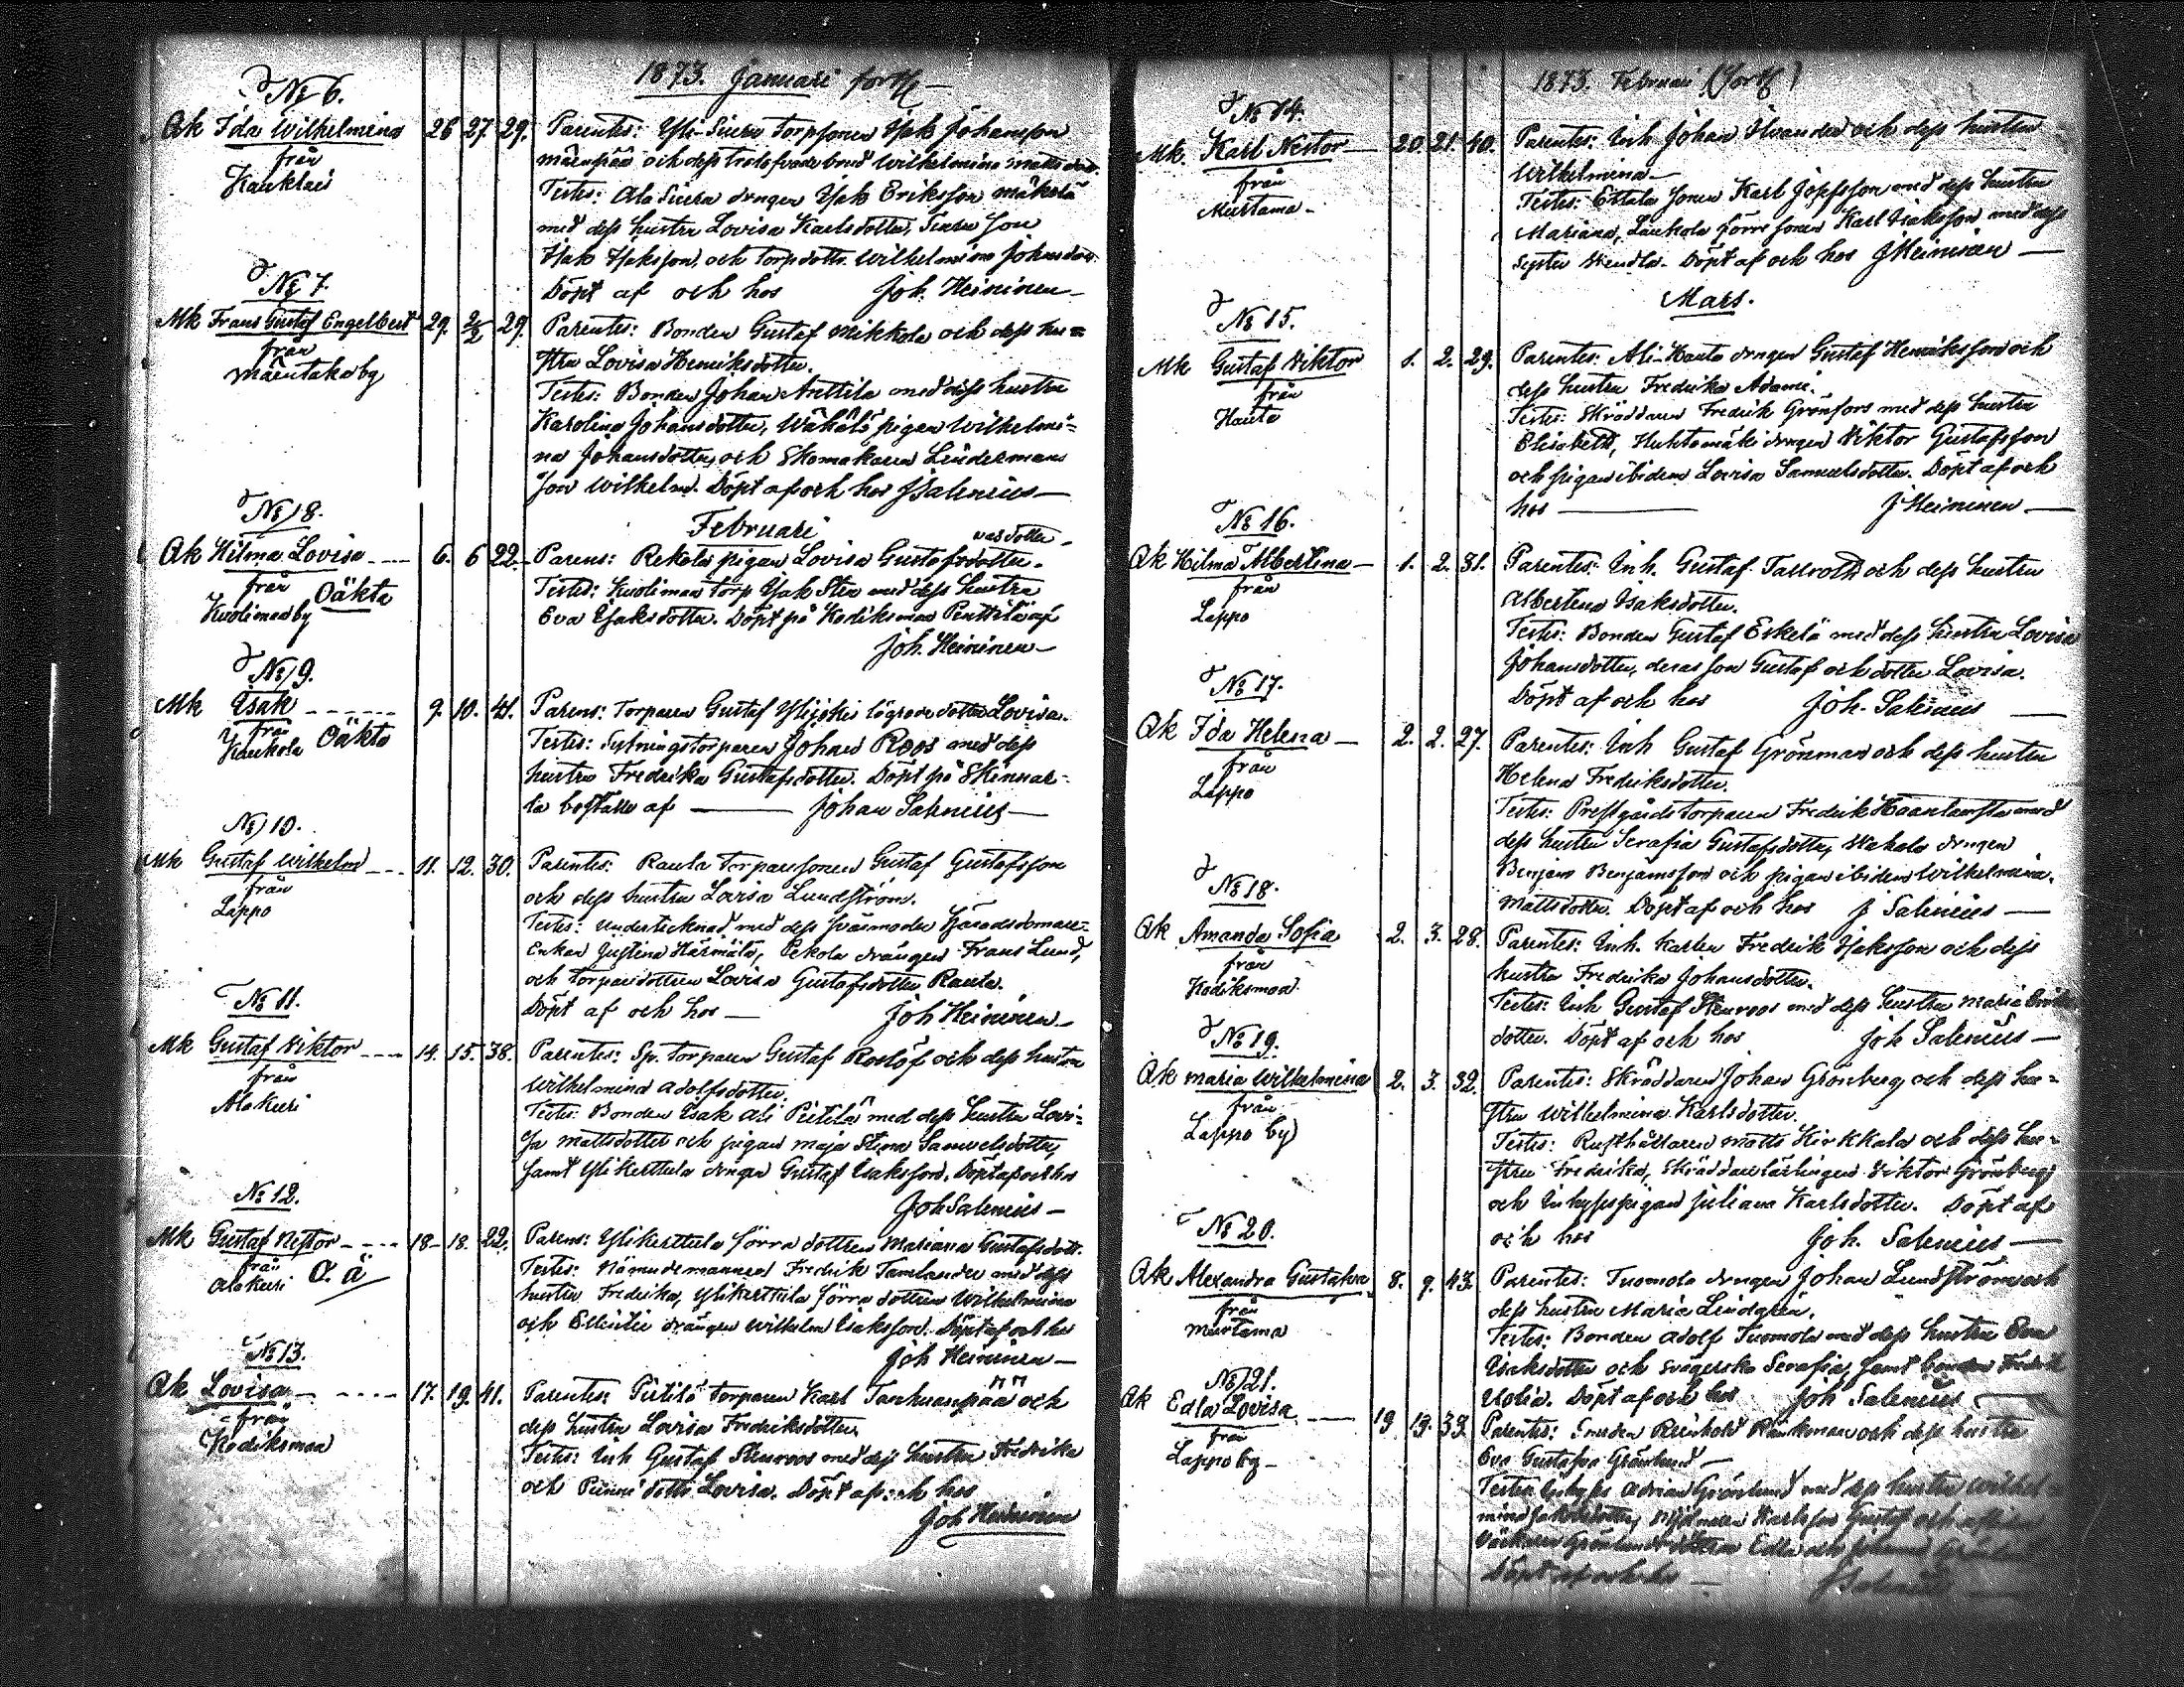 1873. Januari forts. –
No 6.
Qk Ida Wilhelmina 26 27. 29.
från
Kauklais
Parentes: Yli Siura torpsonen Isak Johansson
mäenpää och dess trolofvade brud Wilhelmina Matts dotter.
Testes: Ala Siura drengen Isak Eriksson mäkelä
med dess hustru Lovisa Karlsdotter, Siura son
Isak Isaksson, och torp dottr. Wilhelmina Johansdotter.
Döpt af och hos Joh. Heininen –
No 7.
Mk Frans Gustaf Engelbert 29. 2/2 29.
från
Mäentaka by
Parentes: Bonden Gustaf Mikkola och dess hu=
stru Lovisa Henriksdotter.
Testes: Bonden Johan Anttila med dess hustru
Karolina Johansdotter, Wähälä pigan Wilhelmi=
na Johansdotter, och Skomakaren Lindermans
son Wilhelm. Döpt af och hos J Salenius –
Februari
No 8.
Qk Hilma Lovisa 6. 6 22.
från Oäkta
Kuolimaa by
Parens: Rekola pigan Lovisa Gustafsdotter.
Testes: Kuolimaa torp Isak Sten med dess hustru
Eva Isaksdotter. Döpt på Kodiksmaa Penttilä af
Joh. Heininen –
No 9.
Mk Isak 9. 10. 41.
från Oäkta
Kaukola
Parens: Torparen Gustaf Ylijoki lägrade dotter Lovisa.
Testes: Sytningstorparen Johan Roos med dess
hustru Fredrika Gustafsdotter. Döpt på Skinnar=
la boställe af – Johan Salenius –
No 10.
Mk Gustaf Wilhelm 11. 12. 30.
från
Lappo
Parentes: Rauta torparesonen Gustaf Gustafsson
och dess hustru Lovisa Lundström.
Testes: undertecknad med dess svärmoder Häradsdomare=
Enkan Justina Härmälä, Pekola drängen Frans Lund,
och torparedottren Lovisa Gustafsdotter Rauta.
Döpt af och hos – Joh Heininen –
No 11.
Mk Gustaf Viktor 14. 15. 38.
från
Alakuri
Parentes: Sp. torparen Gustaf Roslöf och dess hustru
Wilhelmina Adolfsdotter.
Testes: Bonden Isak Ali Pietilä med dess hustru Lovi=
sa Mattsdotter och pigan Maja Stina Samuelsdotter,
samt Ylikerttula drengen Gustaf Isaksson. Döpt af och hos
Joh Salenius –
No 12.
Mk Gustaf Nestor 18 – 18. 22.
från O. ä
Alakuri
Parens: Ylikerttula förra dottren Mariana Gustafsdott.
Testes: Nämndemannen Fredrik Tamlander med dess
hustru Fredrika, Ylikerttila förra dottren Wilhelmina
och drängen Wilhelm Isaksson. Döpt af och hos
Joh Heininen –
No 13.
Qk Lovisa 17. 19. 41.
från
Kodiksmaa
Parentes: Pietilä torparen Karl Tanhuanpää och
dess hustru Lovisa Fredriksdotter.
Testes: Inh Gustaf Stenroos med dess hustru Fredrika
och dotter Lovisa. Döpt af och hos
Joh Heininen
1873. Februari (forts)
No 14.
Mk. Karl Nestor – 20. 21. 40.
från
Murtama –
Parentes: Inh Johan och dess hustru
Wilhelmina –
Testes: Ettala sonen Karl Josefsson med dess hustru
Mariana, Laukola förra sonen Karl Isaksson med dess
syster Wendla. Döpt af och hos J Heininen –
Mars.
No 15.
Mk Gustaf Viktor 1. 2. 29.
från
Hauta
Parentes: Ali-Hauta drengen Gustaf Henriksson och
dess hustru Fredrika Adami.
Testes: Skräddaren Fredrik Grönfors med dess hustru
Elisabeth, Huhtamäki drengen Viktor Gustafsson
och pigan ibidem Lovisa Samuelsdotter. Döpt af och
hos – J Heininen –
No 16.
Qk Hilma Albertina – 1. 2. 31.
från
Lappo
Parentes: Inh. Gustaf Tallroth och dess hustru
Albertina Isaksdotter.
Testes: Bonden Gustaf Eskelä med dess hustru Lovisa
Johansdotter, deras son Gustaf och dotter Lovisa.
Döpt af och hos Joh. Salenius –
No 17.
Qk Ida Helena – 2. 2. 27.
från
Lappo
Parentes: Inh Gustaf Grönman och dess hustru
Helena Fredriksdotter.
Testes: Prestgårdstorparen Fredrik med
dess hustru Serafia Gustafsdotter, drengen
Benjam Benjamsson och pigan ibidem Wilhelmina
Mattsdotter. Döpt af och hos J Salenius –
No 18.
Qk Amanda Sofia 2. 3. 28.
från
Kodiksmaa
Parentes: Inh. karlen Fredrik Isaksson och dess
hustru Fredrika Johansdotter.
Testes: Inh Gustaf Stenroos med dess hustru Maria
dotter. Döpt af och hos Joh Salenius –
No 19.
Qk Maria Wilhelmina 2. 3. 32.
från
Lappo by
Parentes: Skräddaren Johan Grönberg och dess hu=
stru Wilhelmina Karlsdotter.
Testes: Rusthållaren Matts Kirkkala och dess hu=
stru Fredrika, Skräddarelärlingen Viktor Grönberg
och Inhyspigan Juliana Karlsdotter. Döpt af
och hos Joh. Salenius –
No 20.
Qk Alexandra Gustava 8. 9. 43.
från
Murtama
Parentes: Tuomola drengen Johan Lundström och
dess hustru Maria Lindgren.
Testes: Bonden Adolf Tuomola med dess hustru Eva
Isaksdotter och svägerska Serafia, samt bonden Fredrik
Uotila. Döpt af och hos Joh Salenius
No 21.
Qk Edla Lovisa 19 19. 39.
från
Lappo by –
Parentes: Smeden Reinhold och dess hustru
Eva Gustafva Grönlund –
Testes: Inhyses Adrian Grönlund med dess hustru Wilhel
mina Gustaf och
Edla och
Döpt af och hos – J Salenius